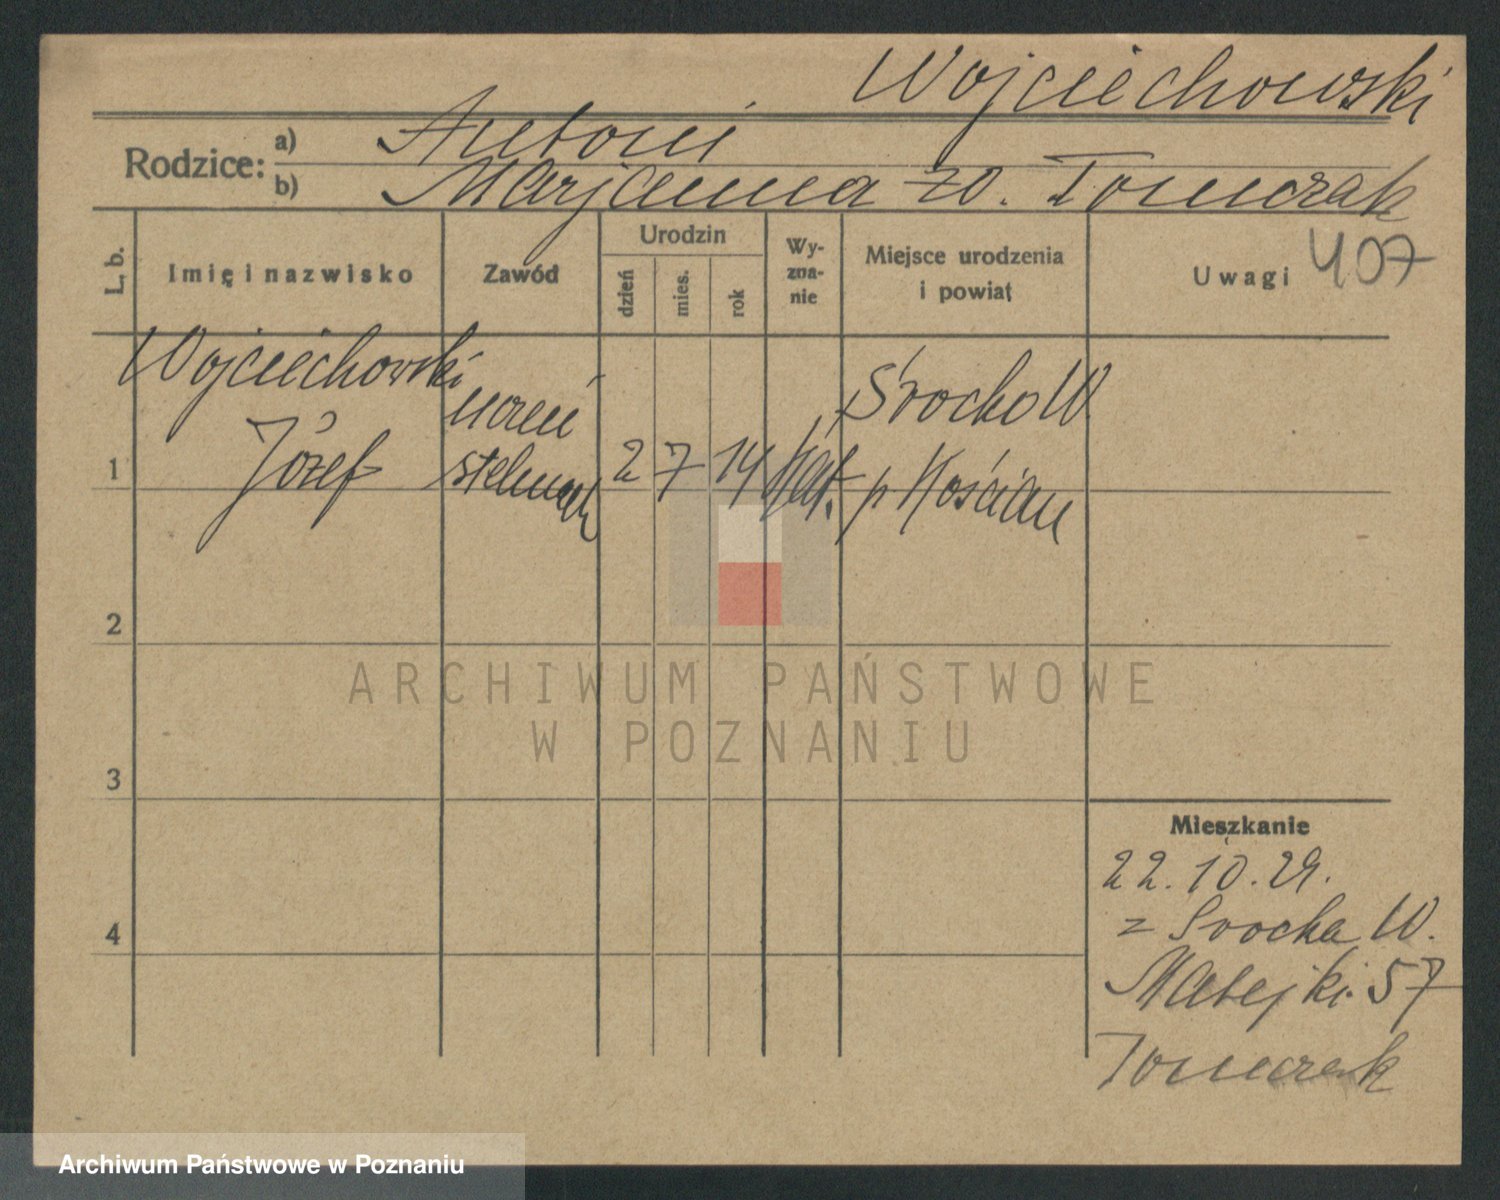 Wojciechowski
Rodzice: a) Antoni
b) Marjanna zd. Tomczak
L. b.
Imię i nazwisko
Zawód
Urodzin
dzień
mies.
rok
Wy-
zna-
nie
Miejsce urodzenia
i powiat
Uwagi 407
Wojciechowski
uczeń
Śrocko W
1 Józef stelmach 2 7 14 kat. p Kościan
2
3
4
Mieszkanie
22.10.29.
z Srocka W.
Matejki 57
Tomczak
ARCHIWUM PAŃSTWOWE
W POZNANIU
Archiwum Państwowe w Poznaniu